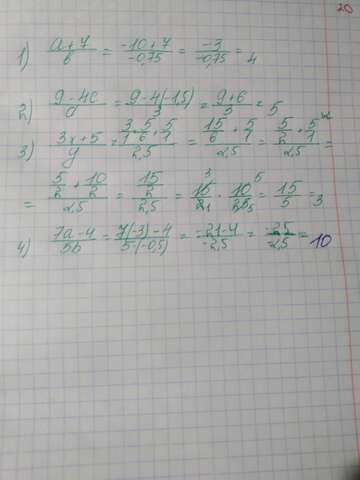 20
1) (a+7)/b = (-10+7)/(-0,75) = (-3)/(-0,75) = 4
2) (9-4c)/d = (9-4(-1,5))/3 = (9+6)/3 = 5
3) (3x+5)/y = (3/1 · 5/6 + 5/1)/2,5 = (15/6 + 5/1)/2,5 = (5/2 + 5/1)/2,5 =
= (5/2 + 10/2)/2,5 = (15/2)/2,5 = 15/2 · 10/25 = 15/5 = 3
4) (7a-4)/5b = (7(-3)-4)/(5·(-0,5)) = (-21-4)/(-2,5) = (-25)/(-2,5) = 10